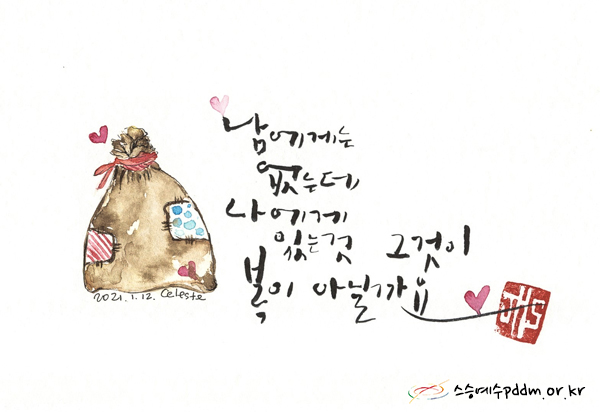 남에게는
없는데
나에게
있는것 그것이
복이 아닐까요
2021.1.12. Celeste
스승예수pddm.or.kr